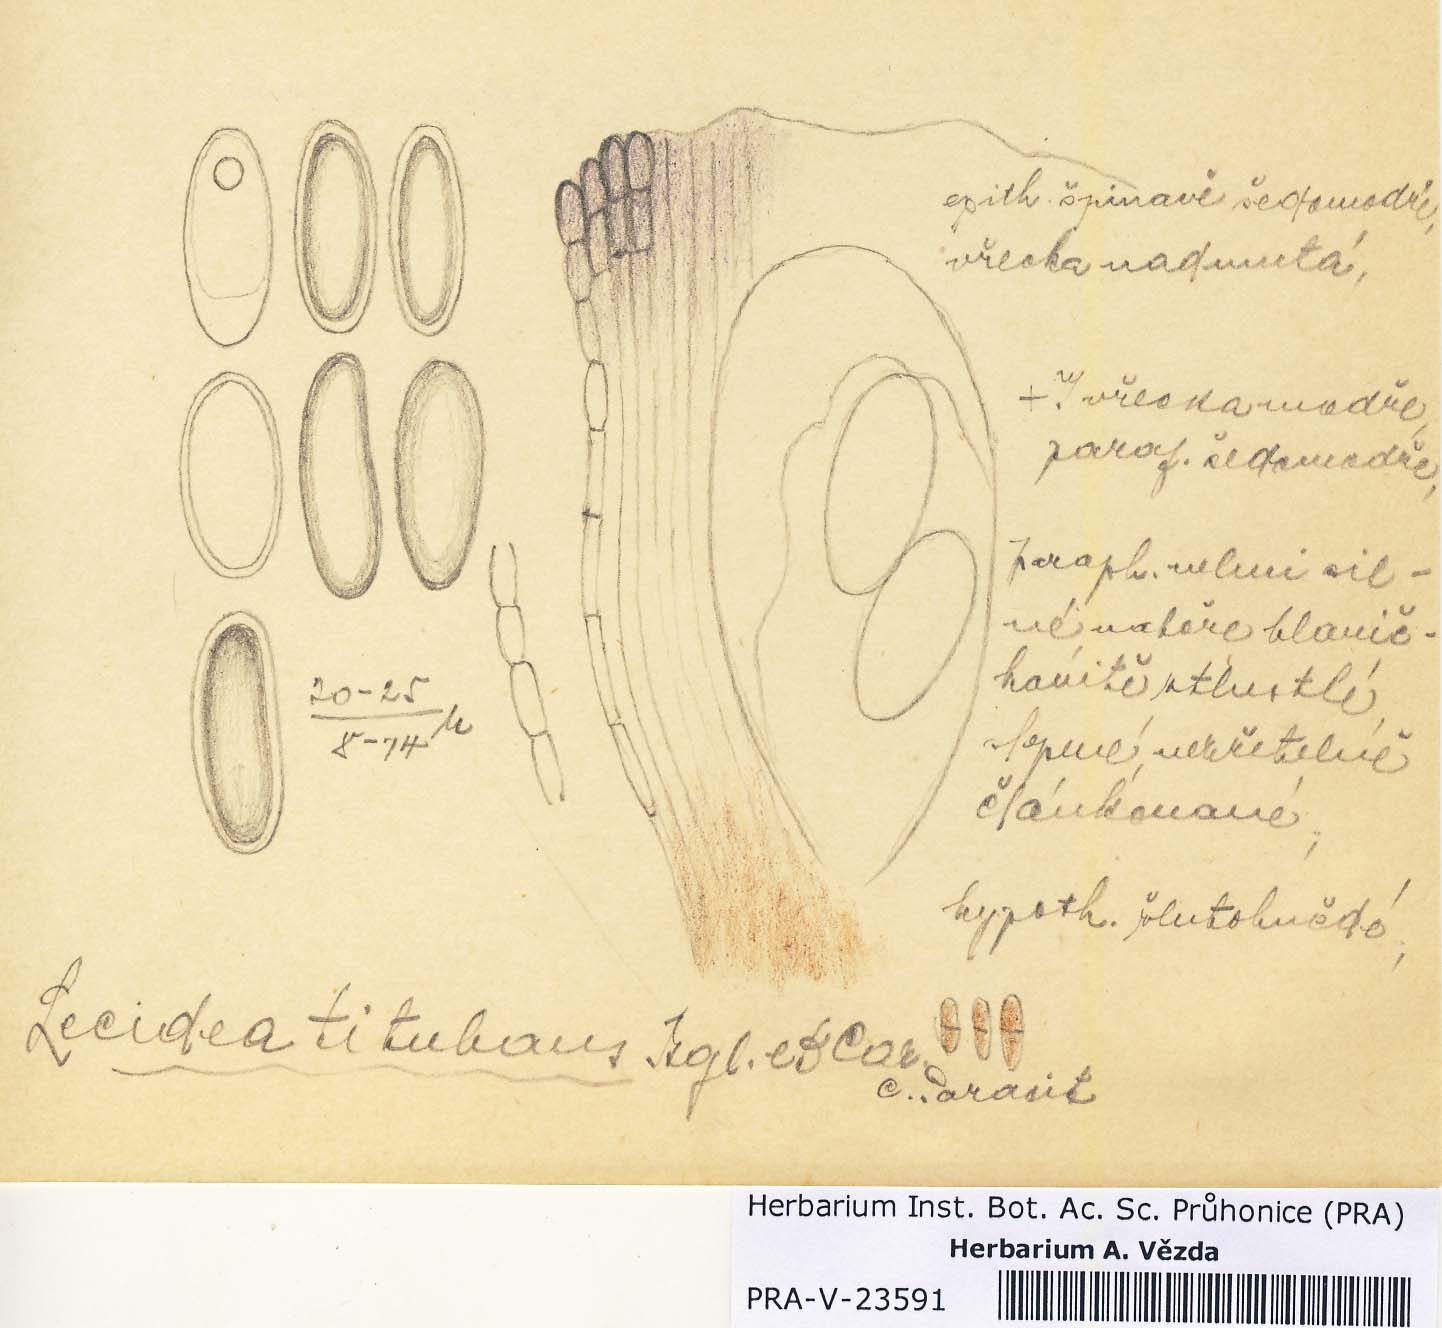 epith. špinavě šedomodré,
vřecka nadmutá,
+ J vřecka modře,
paraf. šedomodře,
paraph. velmi sil-
né, nahoře článeč-
kovitě ztlustlé,
lepené, nezřetelně
článkované,
hypoth. žlutohnědé,
20-25
8-14 μ
Lecidea titubans Kgl. et Car.
c. Parasit
Herbarium Inst. Bot. Ac. Sc. Průhonice (PRA)
Herbarium A. Vězda
PRA-V-23591